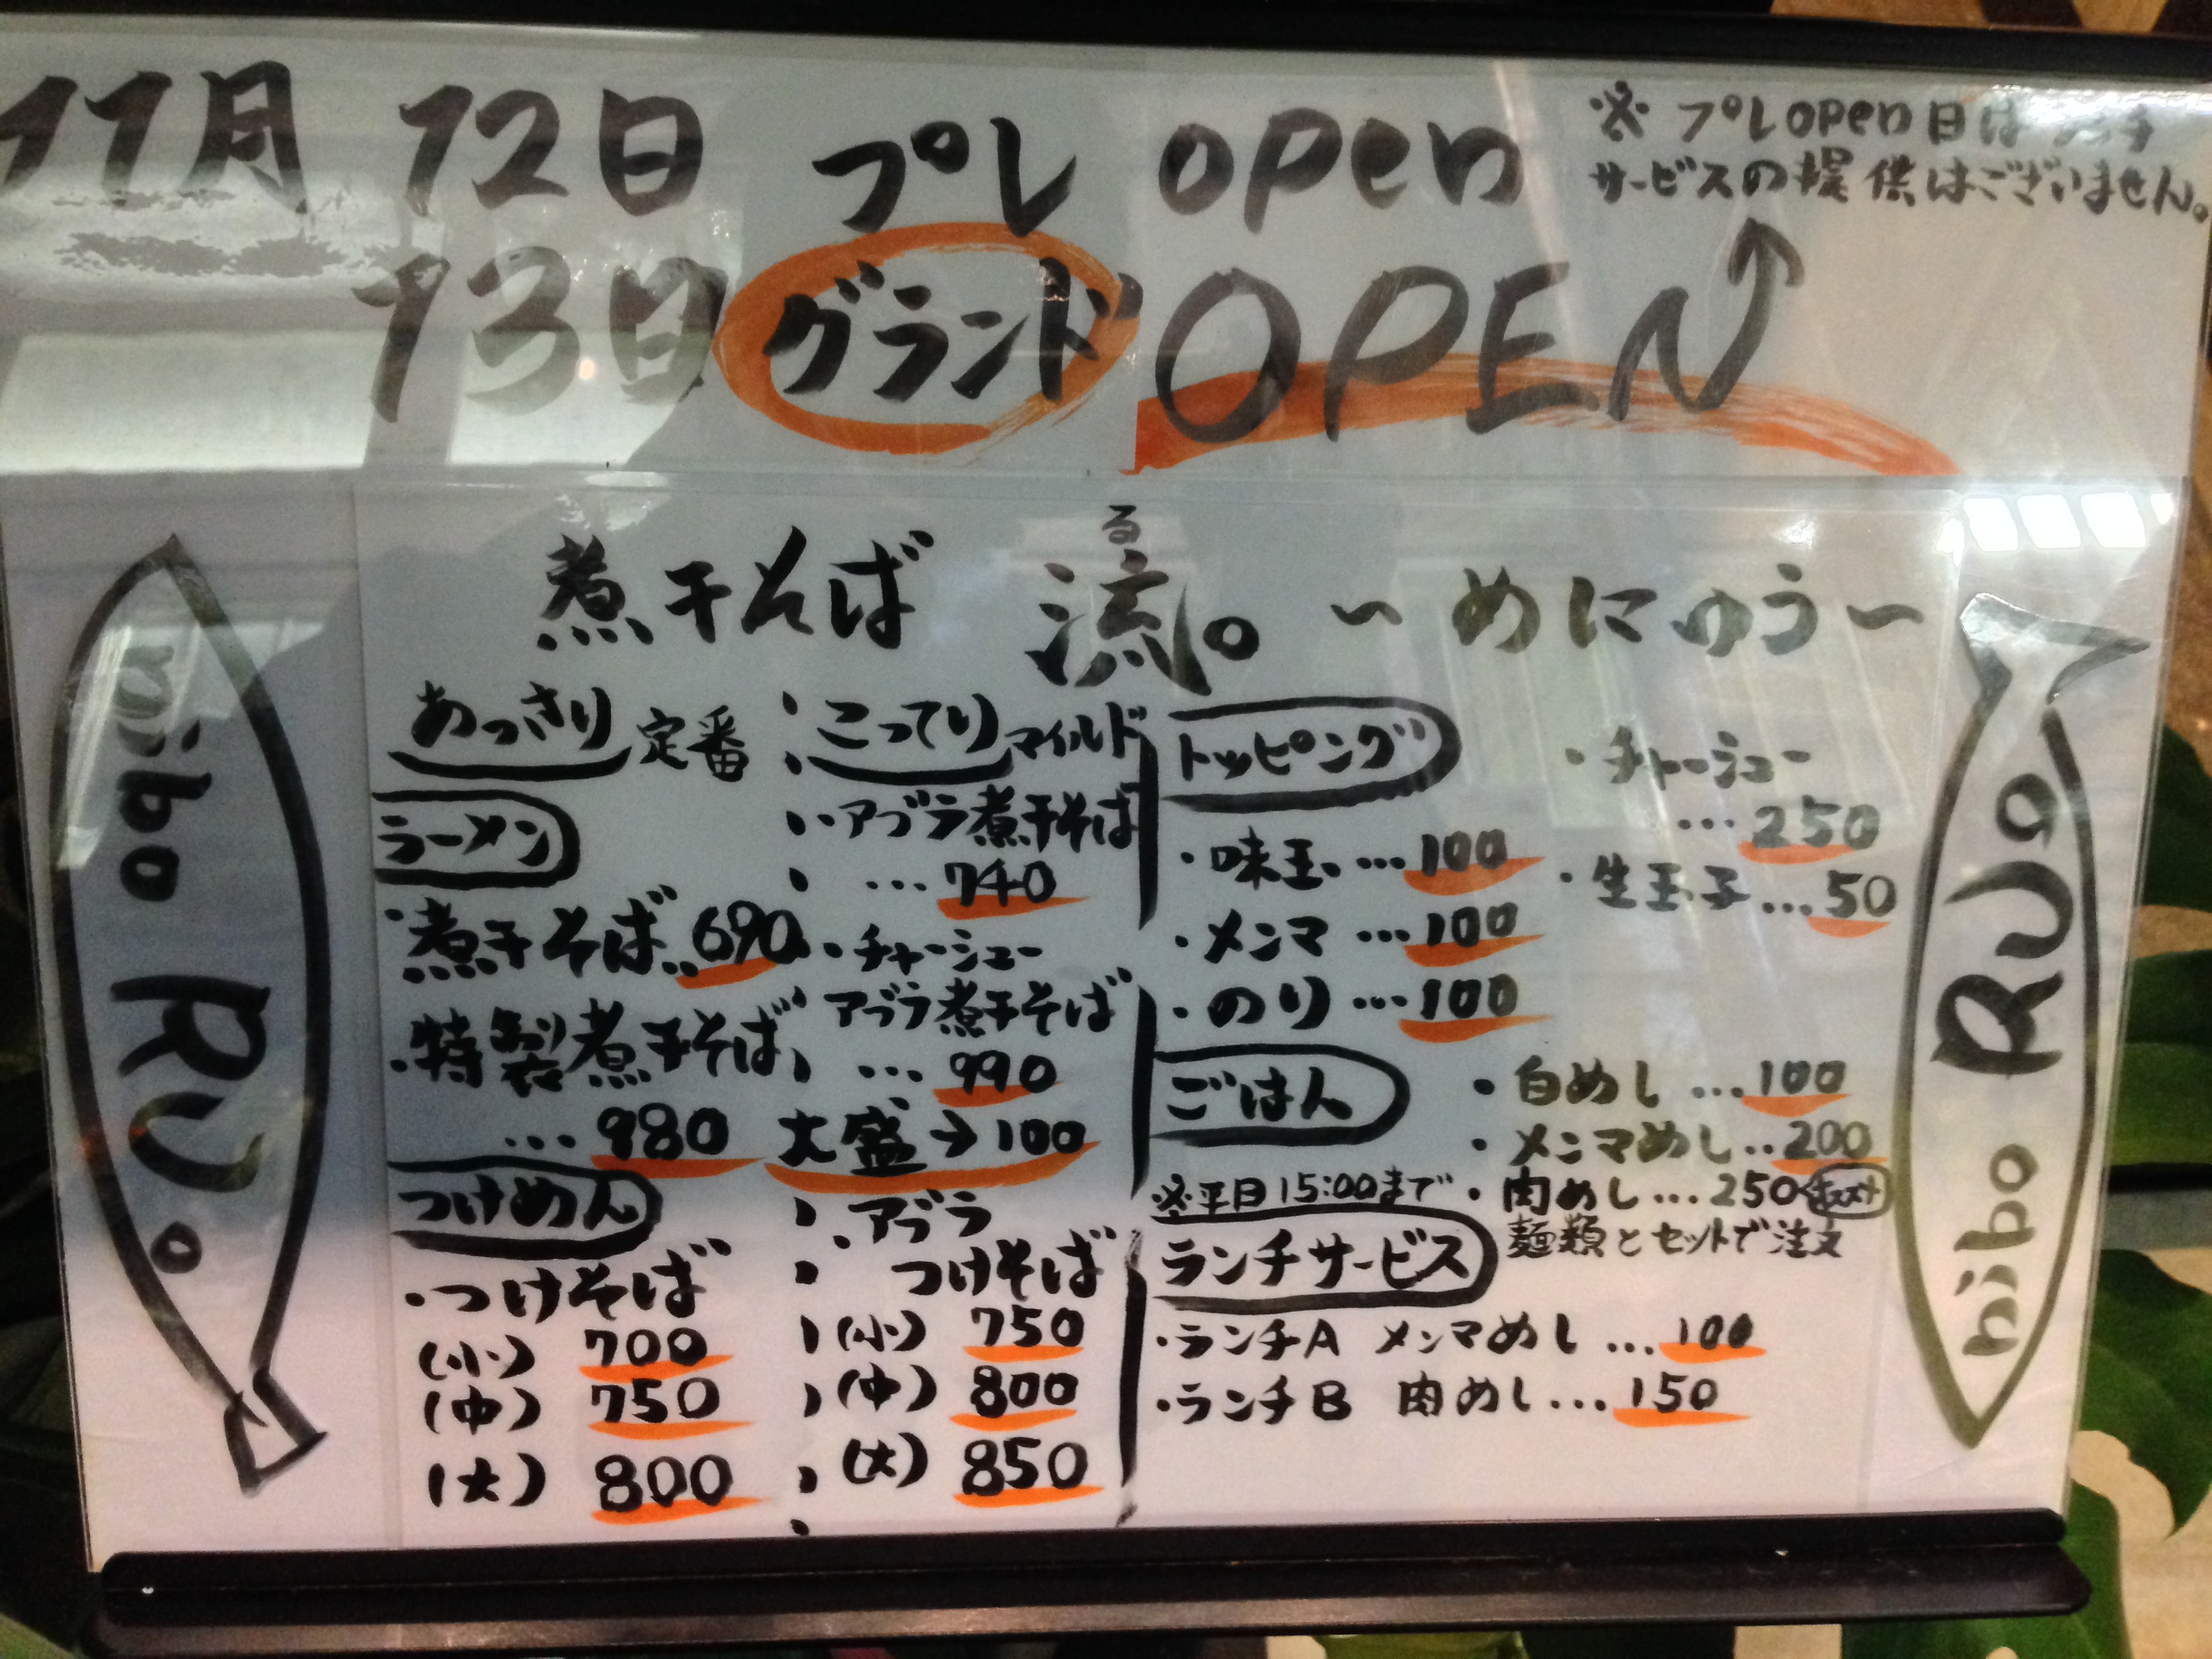 11月 12日 プレ open
※ プレopen日はランチ
サービスの提供はございません。
13日 グランド OPEN
煮干そば 流。 〜めにゅう〜
る
nibo RU。
あっさり 定番
ラーメン
・煮干そば…690
・特製煮干そば
…980
つけめん
・つけそば
(小) 700
(中) 750
(大) 800
こってり マイルド
・アブラ煮干そば
…740
・チャーシュー
アブラ煮干そば
…990
大盛→100
・アブラ
つけそば
(小) 750
(中) 800
(大) 850
トッピング
・味玉…100
・メンマ…100
・のり…100
・チャーシュー
…250
・生玉子…50
ごはん
・白めし…100
・メンマめし…200
・肉めし…250
麺類とセットで注文
※平日15:00まで
ランチサービス
・ランチA メンマめし…100
・ランチB 肉めし…150
nibo RU。